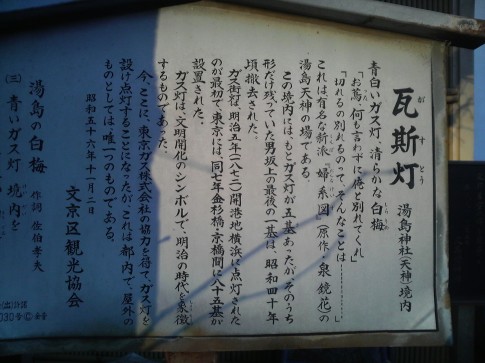 瓦斯灯 湯島神社(天神)境内
がすとう
青白いガス灯、清らかな白梅
「お蔦、何も言わずに俺と別れてくれ」
「切れるの別れるのって、そんなことは………」
これは、有名な新派『婦系図』(原作・泉鏡花)の
湯島天神の場である。
この境内には、もとガス灯が五基あったが、そのうち
形だけ残っていた男坂上の最後の一基は、昭和四十年
頃撤去された。
ガス街灯は、明治五年(一八七二)開港地横浜に点灯された
のが最初で、東京には、同七年金杉橋-京橋間に八五基が
設置された。
ガス灯は、文明開化のシンボルで、明治の時代を象徴
するものであった。
今、ここに、東京ガス株式会社の協力を得て、ガス灯を
設け点灯することになったが、これは都内で、屋外の
ものとしては唯一つのものである。
昭和五十六年十一月二日
文京区観光協会
湯島の白梅 作詞 佐伯孝夫
(三) 青いガス灯 境内を